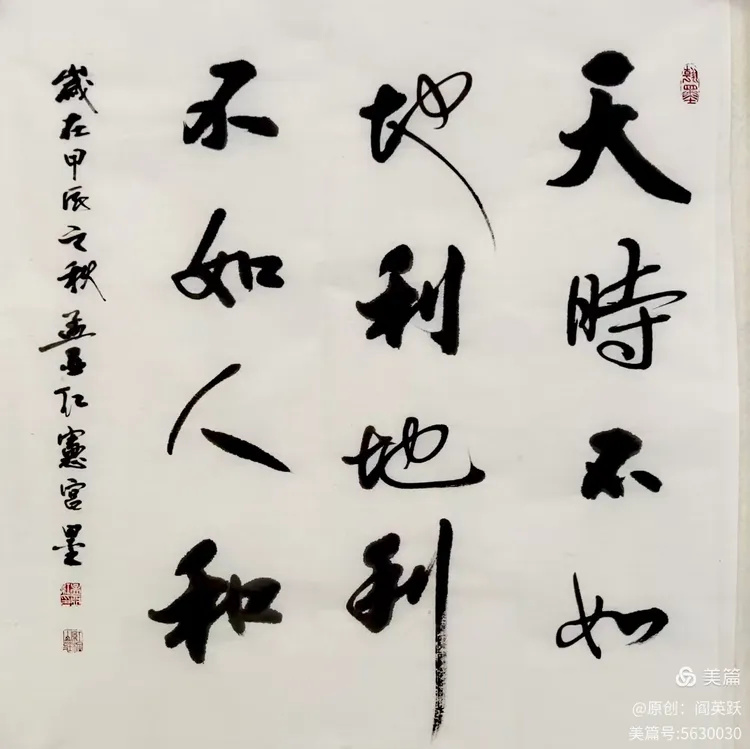 翰墨
天時不如
地利地利
不如人和
歲在甲辰之秋孟憲宫墨
美篇
@原创：阎英跃
美篇号:5630030